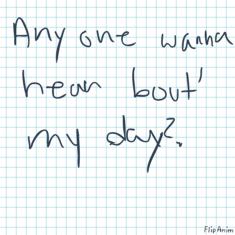 Any one wanna
hear bout'
my day?
FlipAnim